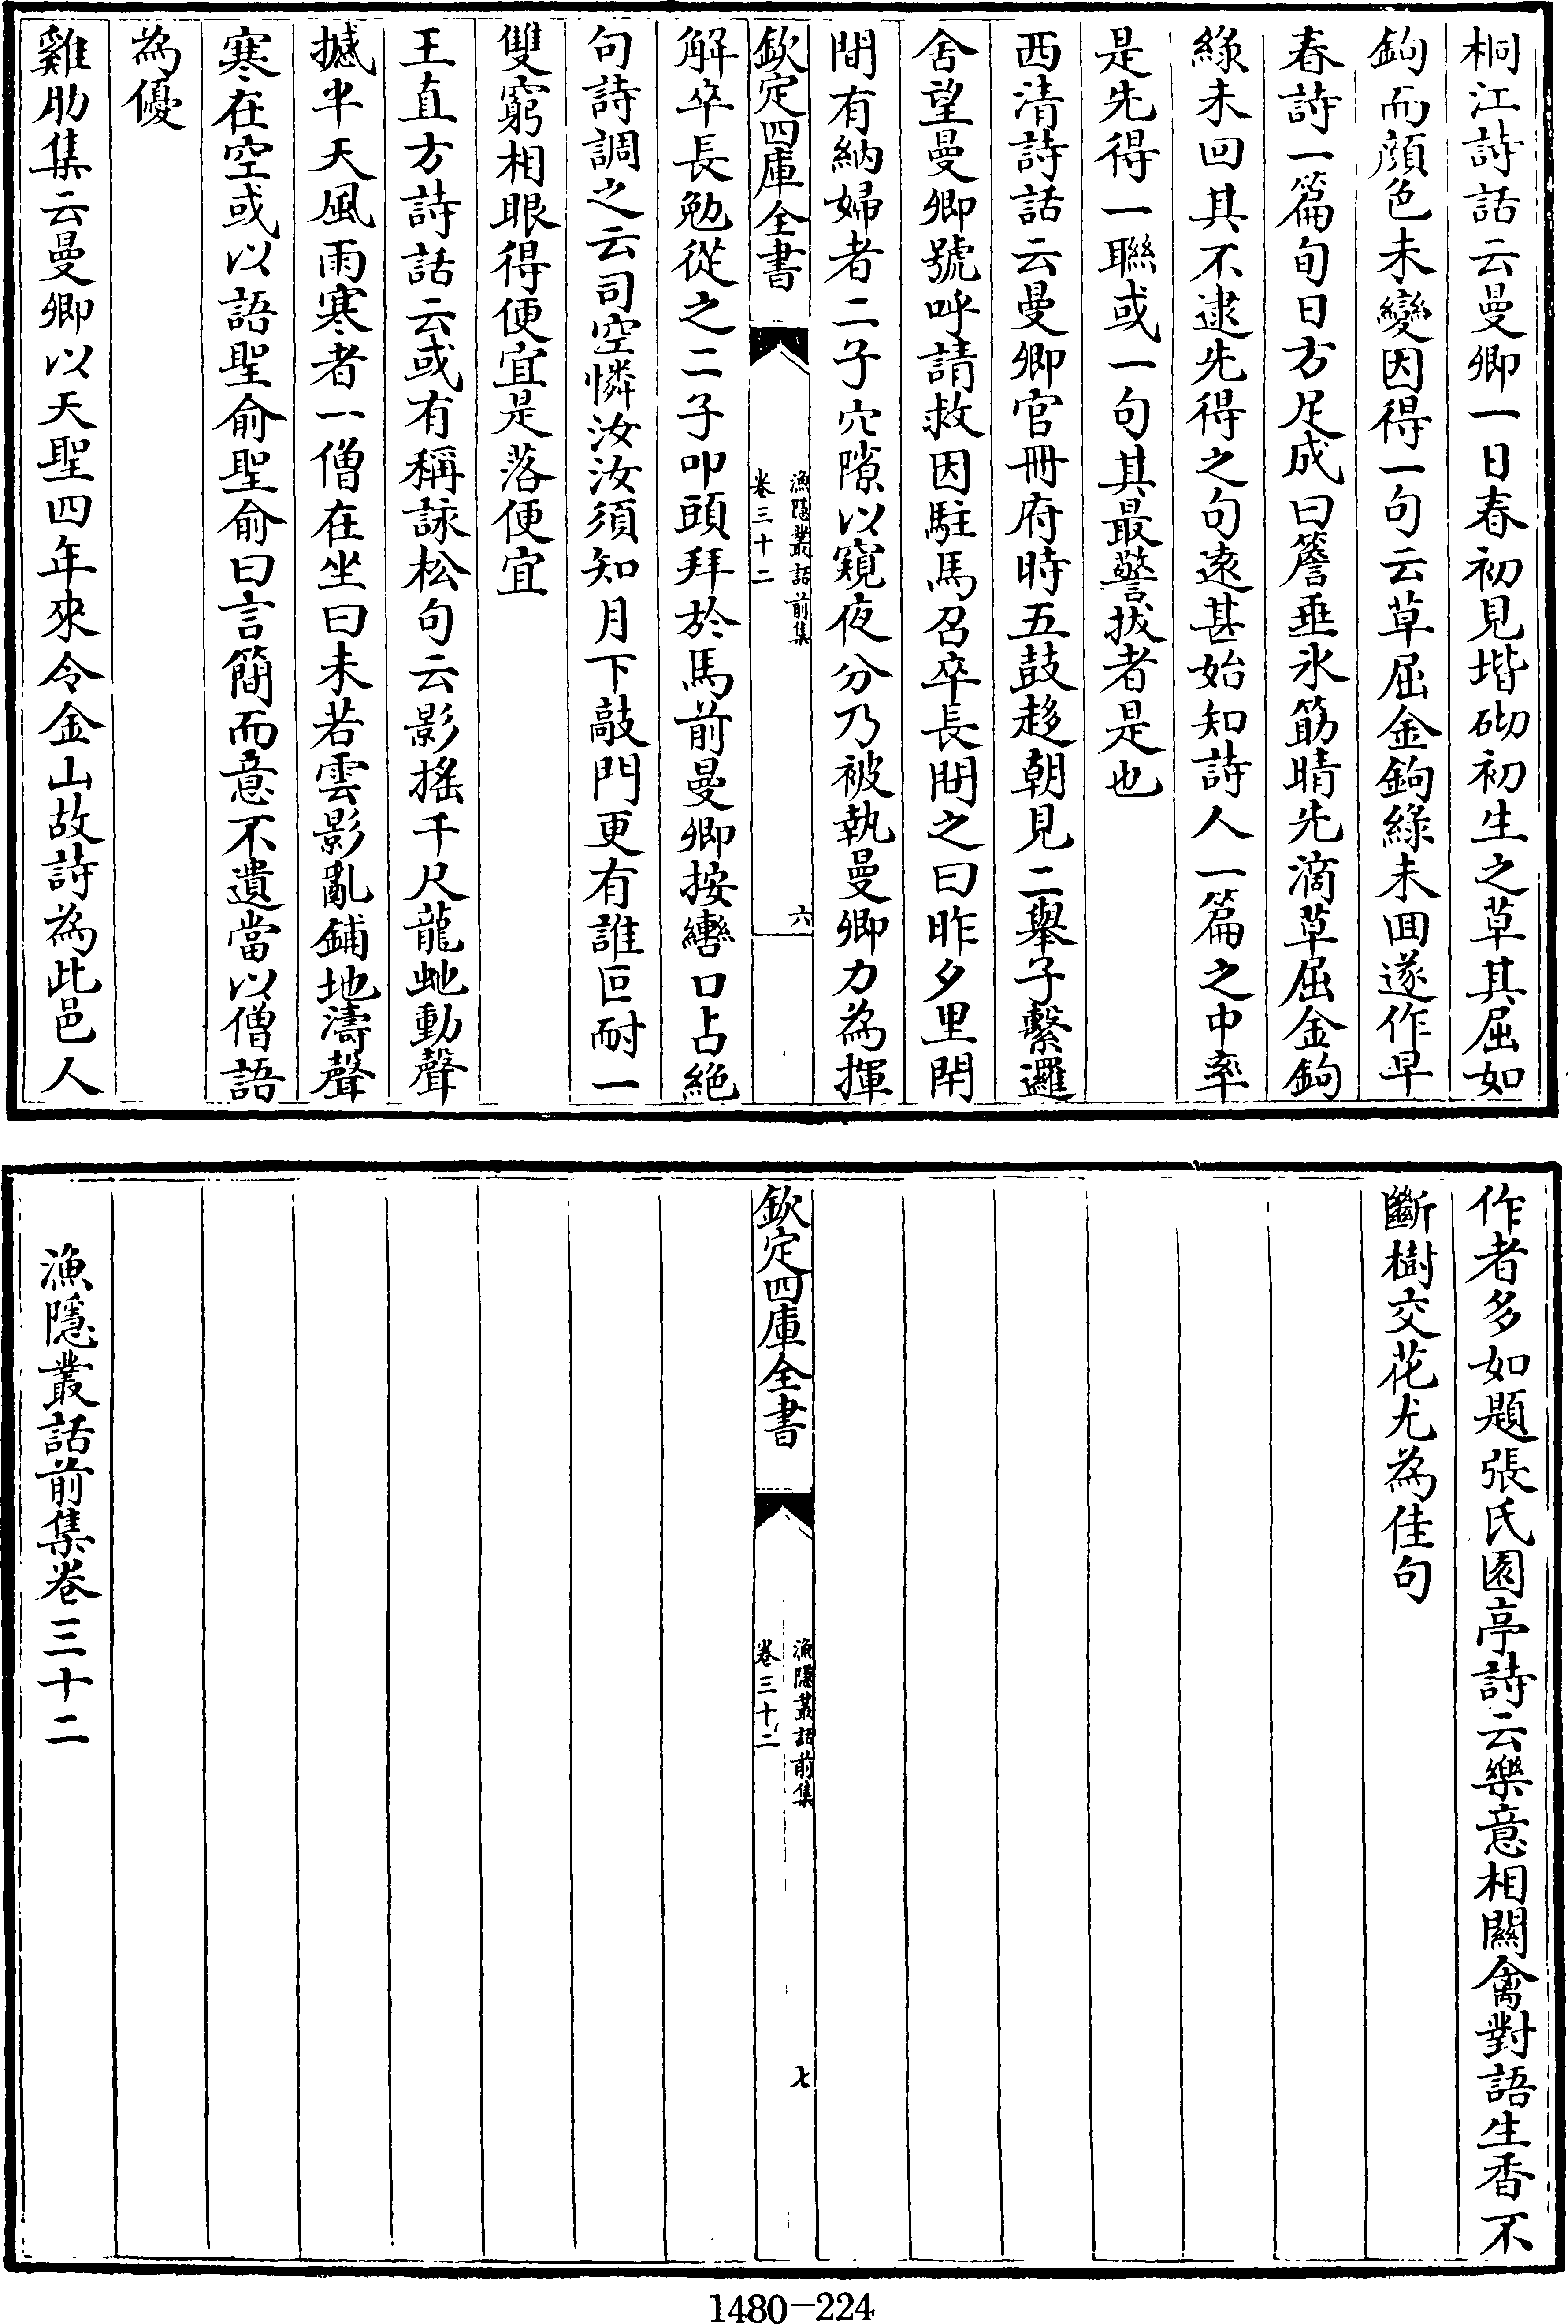 桐江詩話云曼卿一日春初見堦砌初生之草其屈如
鉤而顔色未變因得一句云草屈金鉤綠未回遂作早
春詩一篇旬日方足成曰簷垂氷筯晴先滴草屈金鉤
綠未回其不逮先得之句遠甚始知詩人一篇之中率
是先得一聯或一句其最警拔者是也
西清詩話云曼卿官冊府時五鼓趍朝見二舉子繫邏
舍望曼卿號呼請救因駐馬召卒長問之曰昨夕里閈
間有納婦者二子穴隙以窺夜分乃被執曼卿力為揮
欽定四庫全書
漁隱叢話前集
卷三十二
六
解卒長勉從之二子叩頭拜於馬前曼卿按轡口占絶
句詩調之云司空憐汝汝須知月下敲門更有誰叵耐一
雙窮相眼得便宜是落便宜
王直方詩話云或有稱詠松句云影搖千尺龍虵動聲
撼半天風雨寒者一僧在坐曰未若雲影亂鋪地濤聲
寒在空或以語聖俞聖俞曰言簡而意不遺當以僧語
為優
雞肋集云曼卿以天聖四年來令金山故詩為此邑人
作者多如題張氏園亭詩云樂意相關禽對語生香不
斷樹交花尤為佳句
欽定四庫全書
漁隱叢話前集
卷三十二
七
漁隱叢話前集卷三十二
1480-224